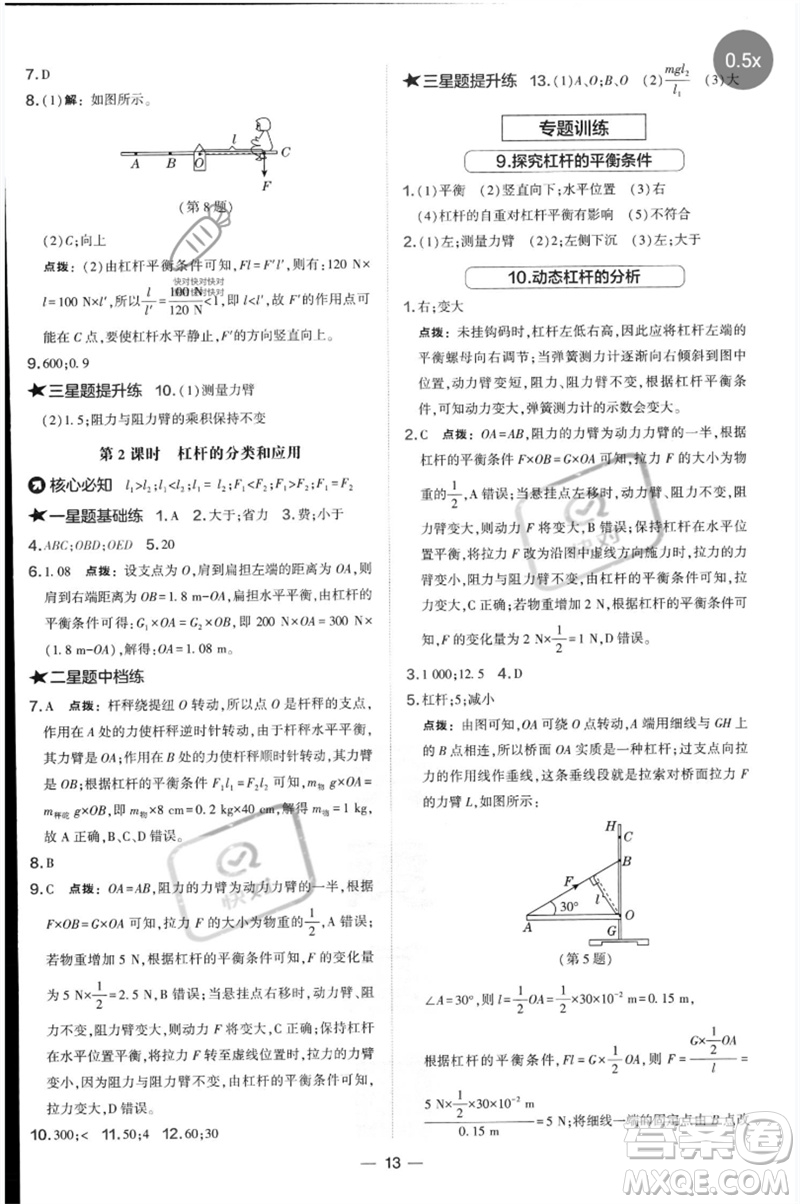 0.5x
7. D
8. (1)解：如图所示。
A B O l C
F
(第8题)
(2)C;向上
点拨：(2)由杠杆平衡条件可知,Fl=F′l′,则有:120 N×
l=100 N×l′,所以l/l′=100 N/120 N<1,即l<l′,故F′的作用点可
能在C点,要使杠杆水平静止,F′的方向竖直向上。
9. 600;0.9
★三星题提升练 10. (1)测量力臂
(2)1.5;阻力与阻力臂的乘积保持不变
第2课时 杠杆的分类和应用
核心必知 l₁>l₂;l₁<l₂;l₁=l₂;F₁<F₂;F₁>F₂;F₁=F₂
★一星题基础练 1. A 2. 大于;省力 3. 费;小于
4. ABC;OBD;OED 5. 20
6. 1.08 点拨：设支点为O,肩到扁担左端的距离为OA,
肩到右端距离为OB=1.8 m-OA,扁担水平平衡,由杠杆的
平衡条件可得:G₁×OA=G₂×OB,即200 N×OA=300 N×
(1.8 m-OA),解得OA=1.08 m。
★二星题中档练
7. A 点拨：杆秤绕提纽O转动,故O点为杆秤的支点,
作用在A处的力使杆秤逆时针转动,由于杆秤水平平衡,
故作用在B处的力使杠杆顺时针转动,由于杆秤水平平衡,
其力臂是OA;根据杠杆的平衡条件F₁l₁=F₂l₂可知,m物g×
OA=m秤砣g×OB,即m物×8 cm=0.2 kg×40 cm,解得m物=1 kg,
故A正确,B、C、D错误。
8. B
9. C 点拨：OA=AB,阻力的力臂为动力臂的一半,根据
F×OB=G×OA可知,拉力F的大小为物重的1/2,A错误;
当悬挂点右移动时,动力臂、阻力不变,阻力臂变大,则动
力F将变大,B错误;根据杠杆的平衡条件可知,拉力F
为5 N×1/2=2.5 N,C正确;保持杠杆在水平位置平衡,
阻力不变,阻力臂变大,则动力F将变大,B错误;保持
杠杆在水平位置平衡,将拉力转至虚线位置时,拉力的力臂
变小,为使杠杆平衡,拉力变大,D错误。
10. 300;< 11. 50;4 12. 60;30
★三星题提升练 13. (1)A、O;B、O (2)mgl₂/l₁ (3)大
专题训练
9.探究杠杆的平衡条件
1. (1)平衡 (2)竖直向下;水平位置 (3)右
(4)杠杆的自重对杠杆平衡有影响 (5)不符合
2. (1)左;测量力臂 (2)左侧下沉 (3)左;大于
10.动态杠杆的分析
1. 右;变大
点拨：未挂钩码时,杠杆左低右高,应将杠杆左端的
平衡螺母向右调节;当弹簧测力计由竖直向下到斜向
下,动力臂变短,阻力、阻力臂不变,根据杠杆平衡条
件,可知动力变大,弹簧测力计的示数会变大。
2. C 点拨：OA=AB,阻力的力臂为动力臂的一半,根据
杠杆的平衡条件F×OB=G×OA可知,拉力F的大小为物
重的1/2,A错误;当悬挂点左移时,动力臂、阻力不变,阻
力臂变小,则动力F将变小,B错误;保持杠杆在水平位
置平衡,将拉力F改为沿图中虚线方向施力时,拉力的
力臂变小,因阻力与阻力臂不变,由杠杆的平衡条件可
知,拉力变大,C正确;若物重增加2 N,根据杠杆平衡条件
可知,F的变化量为2 N×1/2=1 N,D错误。
3. 1 000;12.5 4. D
5. 杠杆;5;减小
点拨：由图可知,OA可绕O点转动,A端用细线与GH上
的B点相连,所以桥面OA实质是一种杠杆;过支点向拉
力的作用线作垂线,该垂线段就是拉索对桥面拉力F
的力臂L,如图所示:
H
C
B
F
30° l
A O
G
(第5题)
∠A=30°,则l=1/2OA=1/2×30×10⁻² m=0.15 m,
根据杠杆的平衡条件,Fl=G×1/2OA,则F=(G×1/2OA)/l=
(5 N×1/2×30×10⁻² m)/0.15 m=5 N;将细线一端的固定点由B点改
13
快对
答案卷
MXQE.COM